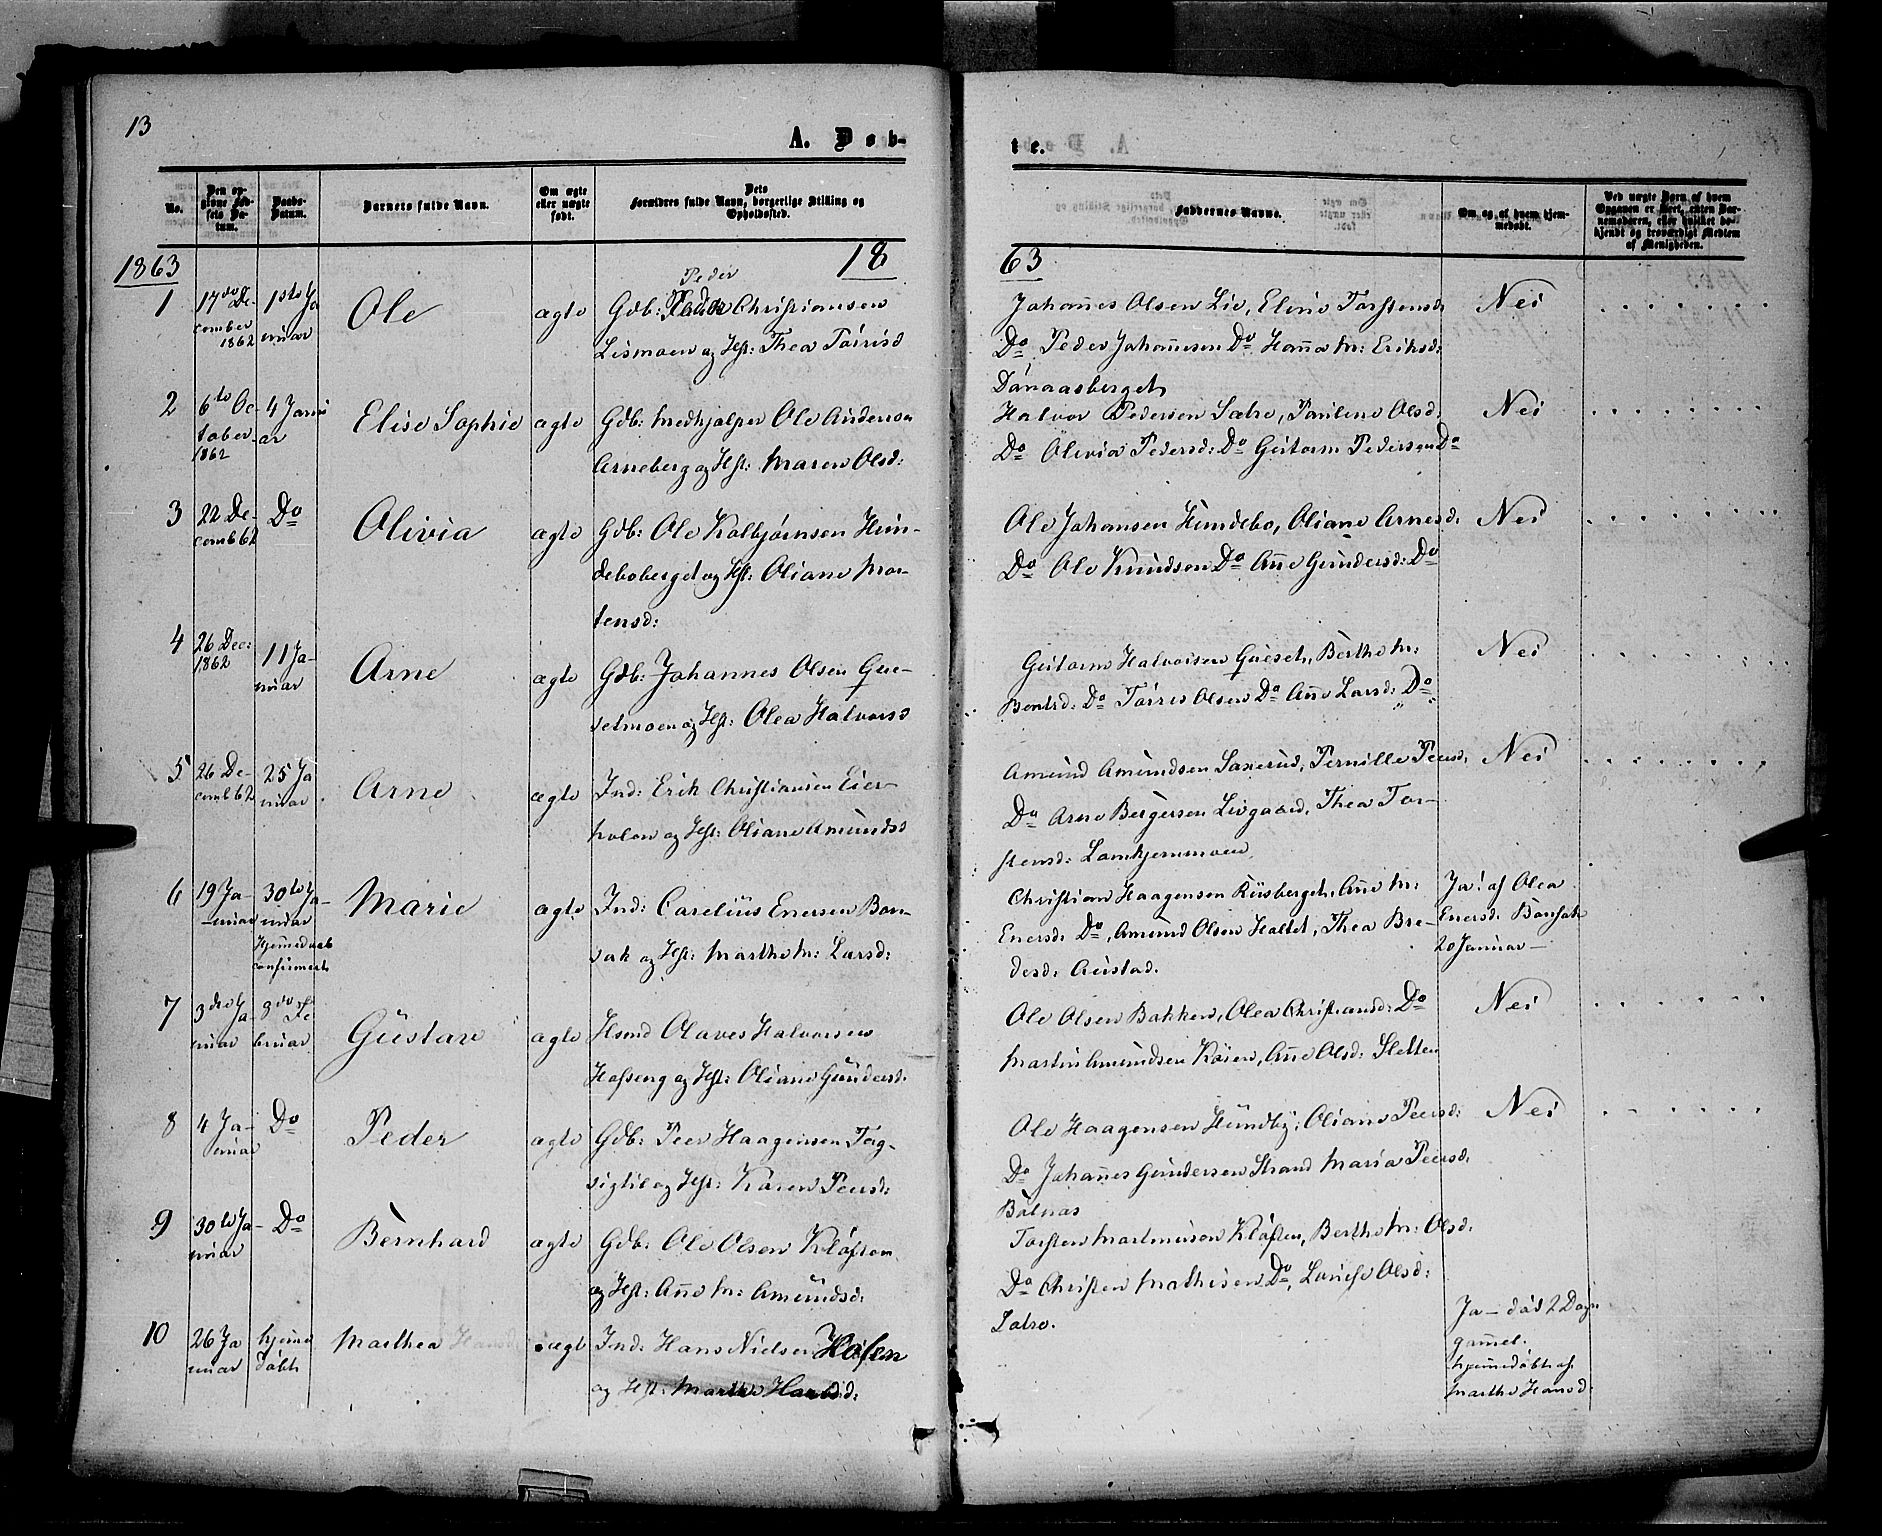 13
A. Døb-
te.
No.
Den op-
givne Fød-
sels Da-
tum.
Daabs-
Datum.
Barnets fulde Navn.
Om ægte
eller uægte
født.
Dets
Forældres fulde Navn, borgerlige Stilling og
Opholdssted.
Faddernes Navne.
Om og af hvem hjem-
medøbt.
Ved uægte Børn af hvem
Opgaven er skeet, enten Bar-
nemoderen, eller hvilket be-
kjendt og troværdigt Medlem
af Menigheden.
1863
18
63
1
17de De-
cember
1862
1ste Ja
nuar
Ole
ægte
Peder
Gdb: Peder Christiansen
Lismoen og Hst: Thea Tórrisd
Johannes Olsen Lie, Eline Torstensd
Do Peder Johannesen Do Hanna M: Eriksd:
Dónaasberget
Nei
2
6te Oc-
tober
1862
4 Janu
ar
Elise Sophie
ægte
Gdb: Medhjælper Ole Andersen
Arneberg og Hst: Maren Olsd:
Halvor Pedersen Sætre, Pauline Olsd.
Do Olivia Pedersd: Do Gutorm Pedersen Do
Nei
3
22 De-
cemb 62
Do
Olivia
ægte
Gdb: Ole Kolbjørnsen Hun-
deboberget og Hst: Oliane Mor-
tensd:
Ole Johansen Hundebo, Oliane Arnesd.
Do Ole Knudsen Do Anne Gundersd: Do
Nei
4
26 Dec:
1862
11 Ja-
nuar
Arne
ægte
Gdb: Johannes Olsen Gue-
setmoen og Hst: Olea Halvorsd
Gutorm Halvorsen Gueset, Berthe M:
Berntsd: Do Tórres Olsen Do Anne Larsd: Do
Nei
5
26 De-
cemb 62
25 Ja
nuar
Arne
ægte
Ind: Erik Christiansen Eier-
holen og Hst: Oliane Amundsd
Amund Amundsen Saxerud, Pernille Peersd,
Do Arne Bergersen Livgaard, Thea Tor-
stensd: Lomkjernmoen
Nei
6
19 Ja-
nuar
30te Ja-
nuar
Hjemedaab
confirmert
Marie
ægte
Ind: Carelius Enersen Bon-
sak og Hst: Marthe M: Larsd:
Christian Haagensen Riisberget, Anne M:
Enersd: Do, Amund Olsen Holtet, Thea Bre-
desd: Austad.
Ja! af Olea
Enersd: Bonsak
20 Januar
7
3die Ja
nuar
8de Fe
bruar
Gustav
ægte
Hsmd Olaves Halvorsen
Hasseng og Hst: Oliane Gundersd.
Ole Olsen Bakken, Olea Christiansd: Do
Martin Amundsen Koien, Anne Olsd: Sletten
Nei
8
4 Ja-
nuar
Do
Peder
ægte
Gdb: Peer Haagensen Tog-
sigtil og Hst: Karen Peersd:
Ole Haagensen Hundby, Oliane Peersd:
Do Johannes Gundersen Strand Maria Peersd.
Bólnas
Nei
9
30te Ja-
nuar
Do
Bernhard
ægte
Gdb: Ole Olsen Klóften
og Hst: Anne M: Amundsd:
Torsten Martinusen Klóften, Berthe M: Olsd:
Do Christen Mathisen Do, Louise Olsd:
Sætre.
10
26 Ja
nuar
hjeme
dóbt
Marthea Hansd
ægte
Ind: Hans Nielsen Hasen
og Hst: Marthe Haraldsd:
Ja – dód 2 Dage
gamel.
hjemedóbt af
Marthe Hansd: